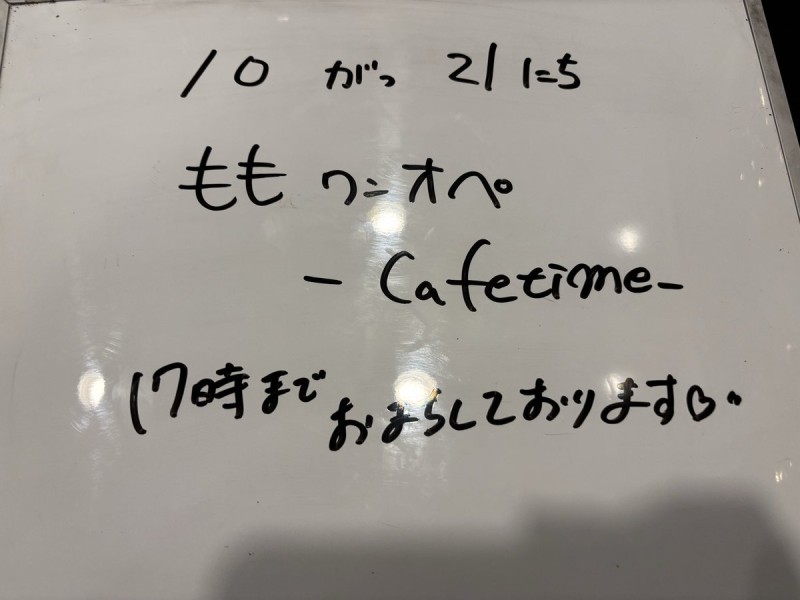 10 がつ 21 にち
もも ワンオペ
- Cafetime -
17時まで おまちしております♡"